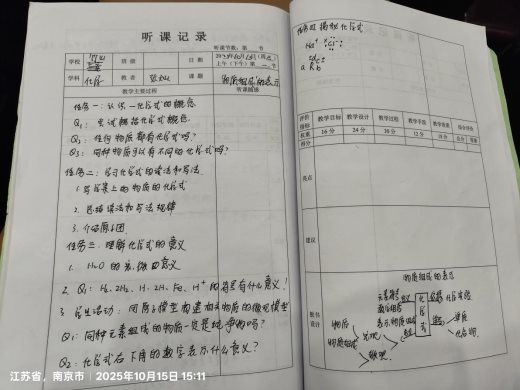 听课记录
听课节数:第 节
学校
班级
日期
2025年10月15日(周三)
上午(下午)第 节
学科
化学
教者
课题
物质组成的表示
教学主要过程
听课随感
任务一:认识一化学式的概念
Q1:尝试概括化学式概念
Q2:任何物质都有化学式吗?
Q3:同种物质可以有不同的化学式吗?
任务二:学习化学式的读法和写法
1.写标签上的物质的化学式
2.总结读法和写法规律
3.介绍原子团
任务三:理解化学式的意义
1. H₂O的宏、微观意义
2. Q:H₂、2H₂、H、2H、Fe、H⁺的符号有什么意义?
3.学生活动:用原子模型构建相关物质的微观模型
Q1:同种元素组成的物质一定是纯净物吗?
Q2:化学式右下角的数字表示什么意义?
任务四 揭秘化学式
Na⁺
评价指标
教学目标
教学设计
教学过程
教学手段
教学效果
综合评价
权重
16分
24分
36分
12分
12分
总分
等第
得分
亮点
建议
板书设计
物质组成的表示
元素符号
数字组合
表示物质组成
化学式
意义
单质
化合物
物质
物质组成
宏观
微观
江苏省,南京市 | 2025年10月15日 15:11